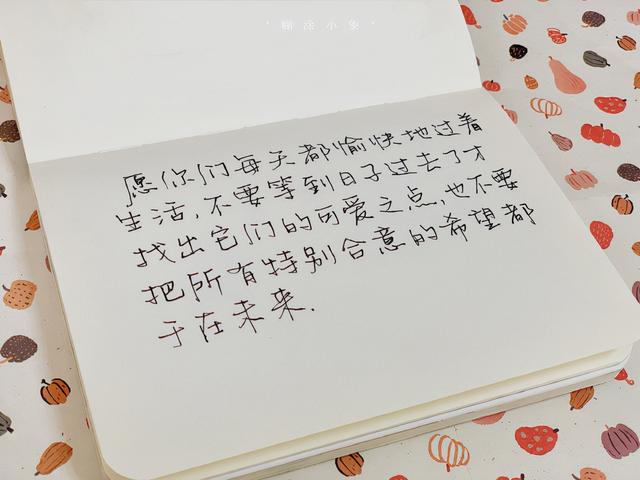 糊涂小象
愿你们每天都愉快地过着
生活,不要等到日子过去了才
找出它们的可爱之点,也不要
把所有特别合意的希望都
于在未来.